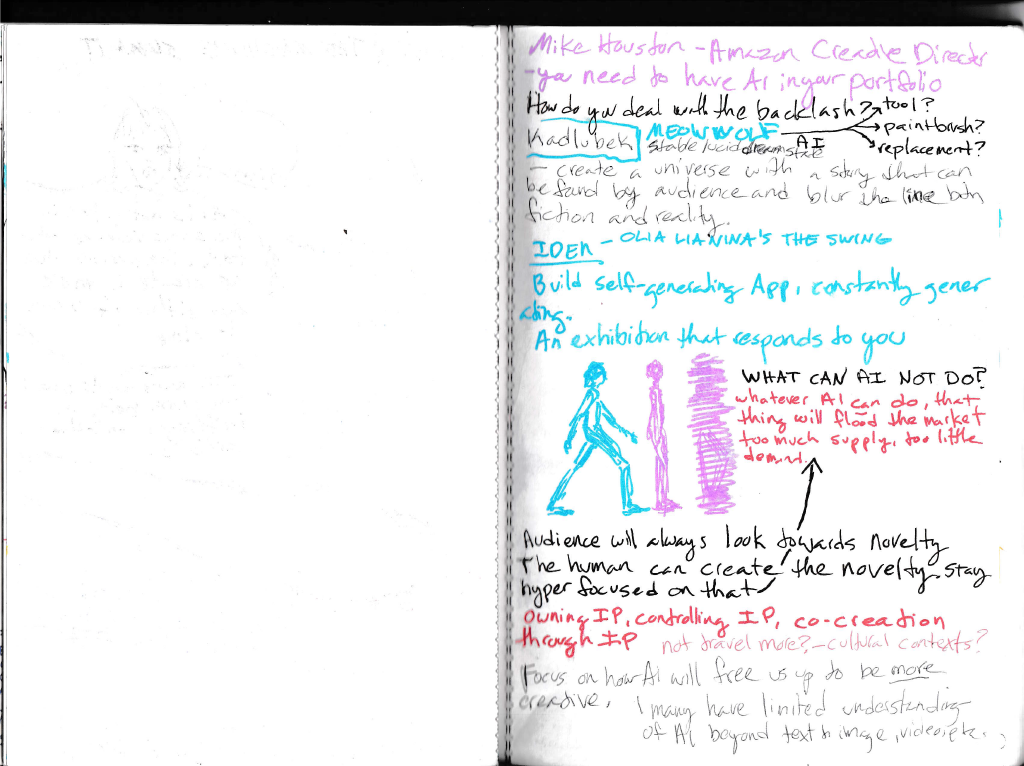 Mike Houston - Amazon Creative Director
- you need to have AI in your portfolio
How do you deal with the backlash? tool?
paintbrush?
replacement?
Kadlubek MEOW WOLF AI
stable lucid dream state
- create a universe with a story that can
be found by audience and blur the line btn
fiction and reality..
IDEA - OLIA LIANINA'S THE SWING
Build self-generating App, constantly gener
ating.
An exhibition that responds to you
WHAT CAN AI NOT DO?
whatever AI can do, that
thing will flood the market
too much supply, too little
demand.
Audience will always look towards novelty
The human can create the novelty. stay
hyper focused on that
Owning IP, controlling IP, co-creation
through IP not travel more? - cultural contexts?
Focus on how AI will free us up to be more
creative.
many have limited understanding
of AI beyond text &
image, video, etc.